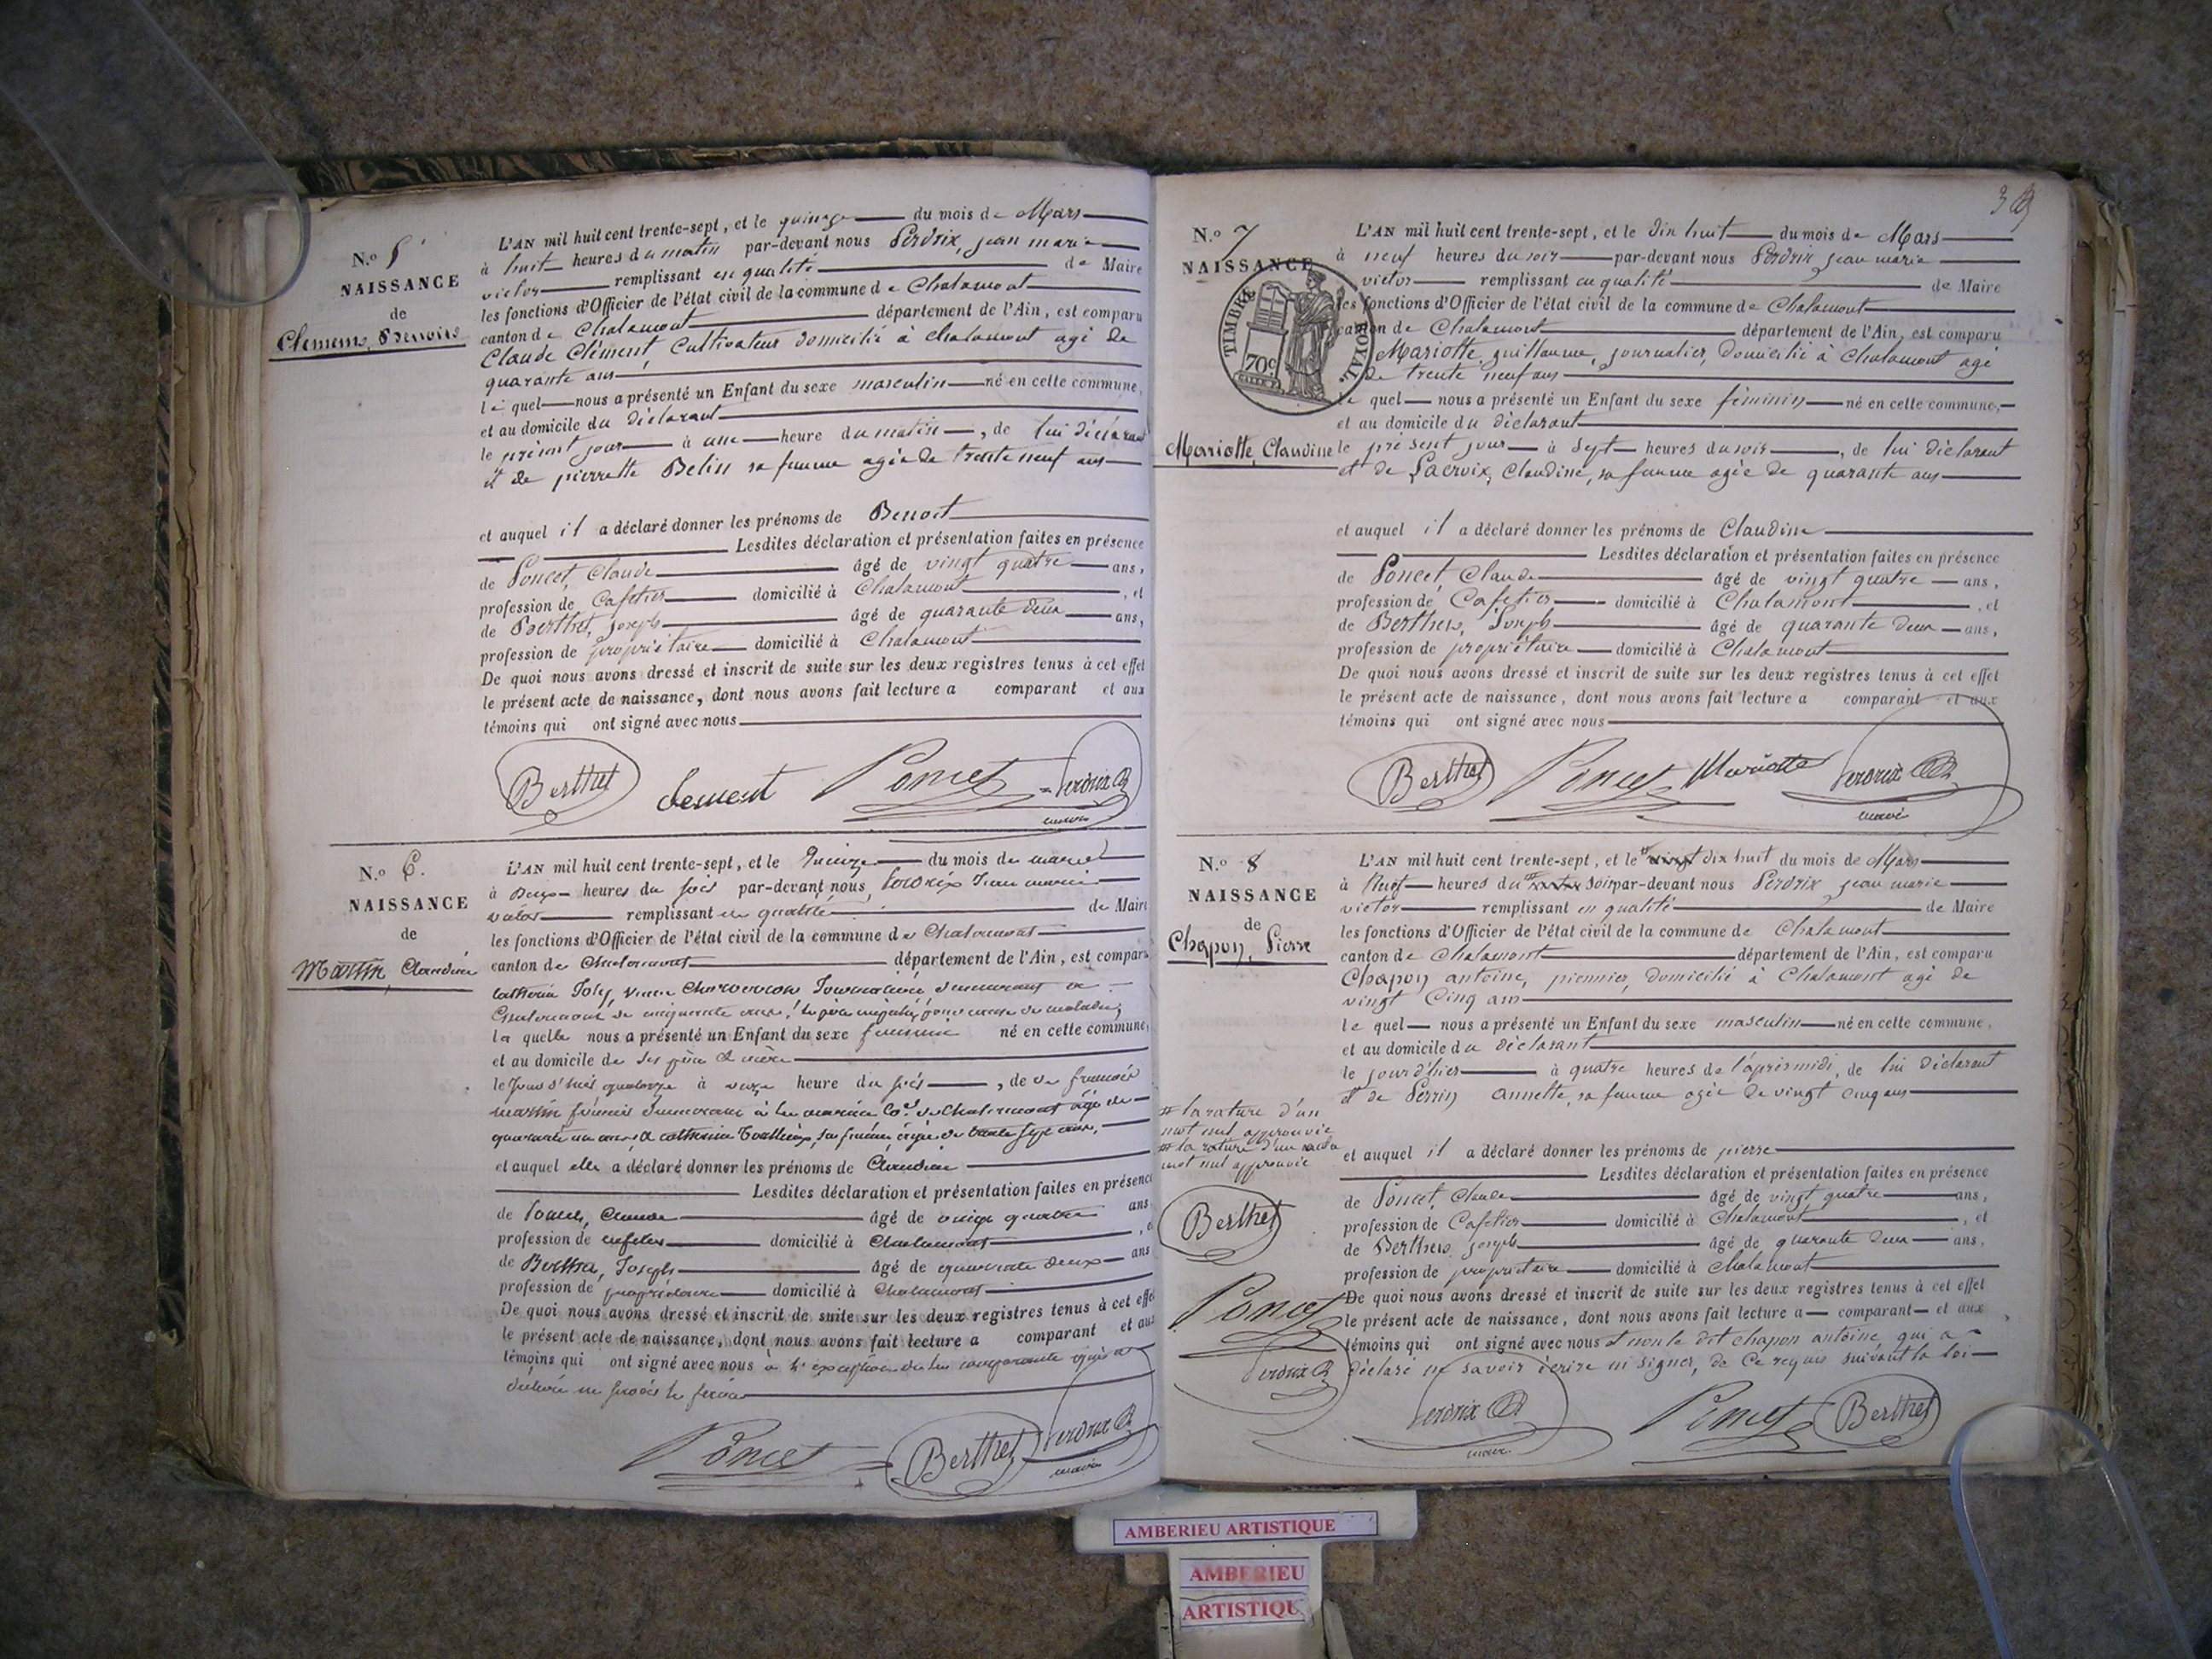 N.o 5
NAISSANCE
de
Clément, Benoit
L'AN mil huit cent trente-sept, et le quinze du mois de Mars
à huit heures du matin par-devant nous Perdrix, jean marie
victor remplissant en qualité de Maire
les fonctions d'Officier de l'état civil de la commune de Chalamont
canton de Chalamont département de l'Ain, est comparu
Claude Clément, Cultivateur domicilié à chalamont agé de
quarante ans
le quel nous a présenté un Enfant du sexe masculin né en cette commune,
et au domicile du déclarant
le présent jour à une heure du matin, de lui déclarant
et de pierrette Belin sa femme agée de trente neuf ans
et auquel il a déclaré donner les prénoms de Benoit
Lesdites déclaration et présentation faites en présence
de Poncet, Claude âgé de vingt quatre ans,
profession de Cafetier domicilié à Chalamont, et
de Berthet, Joseph âgé de quarante deux ans,
profession de propriétaire domicilié à Chalamont
De quoi nous avons dressé et inscrit de suite sur les deux registres tenus à cet effet
le présent acte de naissance, dont nous avons fait lecture a comparant et aux
témoins qui ont signé avec nous
Berthet Clement Poncet Perdrix
maire
N.o 6.
NAISSANCE
de
Martin, Claudine
L'AN mil huit cent trente-sept, et le Quinze du mois de mars
à Deux heures du soir par-devant nous Perdrix Jean marie
victor remplissant en qualité de Maire
les fonctions d'Officier de l'état civil de la commune de Chalamont
canton de Chalamont département de l'Ain, est comparu
Catherine Joly, veuve demeurant a
Chalamont de cinquante ans, le père empêché pour cause de maladie,
la quelle nous a présenté un Enfant du sexe féminin né en cette commune,
et au domicile de ses père & mère
le jour d'hier quatorze à onze heure du soir, de
martin demeurant à Con. de Chalamont âgé de
quarante un ans & catherine sa femme âgée de trente sept ans,
et auquel elle a déclaré donner les prénoms de Claudine
Lesdites déclaration et présentation faites en présence
de Poncet, Claude âgé de vingt quatre ans
profession de cafetier domicilié à Chalamont
de Berthet, Joseph âgé de quarante deux ans
profession de propriétaire domicilié à Chalamont
De quoi nous avons dressé et inscrit de suite sur les deux registres tenus à cet effet
le présent acte de naissance, dont nous avons fait lecture a comparant et aux
témoins qui ont signé avec nous à l'exception de la comparante qui a
déclaré ne savoir le faire
Poncet Berthet Perdrix
maire
39
N.o 7
NAISSANCE
TIMBRE ROYAL.
70c
Mariotte, Claudine
L'AN mil huit cent trente-sept, et le dix huit du mois de Mars
à neuf heures du soir par-devant nous Perdrix jean marie
victor remplissant en qualité de Maire
les fonctions d'Officier de l'état civil de la commune de Chalamont
canton de Chalamont département de l'Ain, est comparu
Mariotte, guillaume, journalier, domicilié à Chalamont agé
de trente neuf ans
le quel nous a présenté un Enfant du sexe féminin né en cette commune,
et au domicile du déclarant
le présent jour à sept heures du soir, de lui déclarant
et de Lacroix, Claudine, sa femme agée de quarante ans
et auquel il a déclaré donner les prénoms de Claudine
Lesdites déclaration et présentation faites en présence
de Poncet Claude âgé de vingt quatre ans,
profession de Cafetier domicilié à Chalamont, et
de Berthet, Joseph âgé de quarante deux ans,
profession de propriétaire domicilié à Chalamont
De quoi nous avons dressé et inscrit de suite sur les deux registres tenus à cet effet
le présent acte de naissance, dont nous avons fait lecture a comparant et aux
témoins qui ont signé avec nous
Berthet Poncet Mariotte Perdrix
maire
N.o 8
NAISSANCE
de
Chapon, Pierre
L'AN mil huit cent trente-sept, et le vingt dix huit du mois de Mars
à Neuf heures du soir par-devant nous Perdrix jean marie
victor remplissant en qualité de Maire
les fonctions d'Officier de l'état civil de la commune de Chalamont
canton de Chalamont département de l'Ain, est comparu
Chapon antoine, domicilié à Chalamont agé de
vingt Cinq ans
le quel nous a présenté un Enfant du sexe masculin né en cette commune,
et au domicile du déclarant
le jour d'hier à quatre heures de l'après midi, de lui déclarant
et de Perrin annette, sa femme agée de vingt cinq ans
et auquel il a déclaré donner les prénoms de pierre
Lesdites déclaration et présentation faites en présence
de Poncet, Claude âgé de vingt quatre ans,
profession de Cafetier domicilié à Chalamont, et
de Berthet, joseph âgé de quarante deux ans,
profession de propriétaire domicilié à Chalamont
De quoi nous avons dressé et inscrit de suite sur les deux registres tenus à cet effet
le présent acte de naissance, dont nous avons fait lecture a comparant et aux
témoins qui ont signé avec nous et non le dit chapon antoine, qui a
déclaré ne savoir écrire ni signer, de ce requis suivant la loi
Perdrix Poncet Berthet
maire
# la rature d'un
mot nul approuvée
# la rature d'un
mot nul approuvée
Berthet
Poncet
Perdrix
AMBERIEU ARTISTIQUE
AMBERIEU
ARTISTIQU